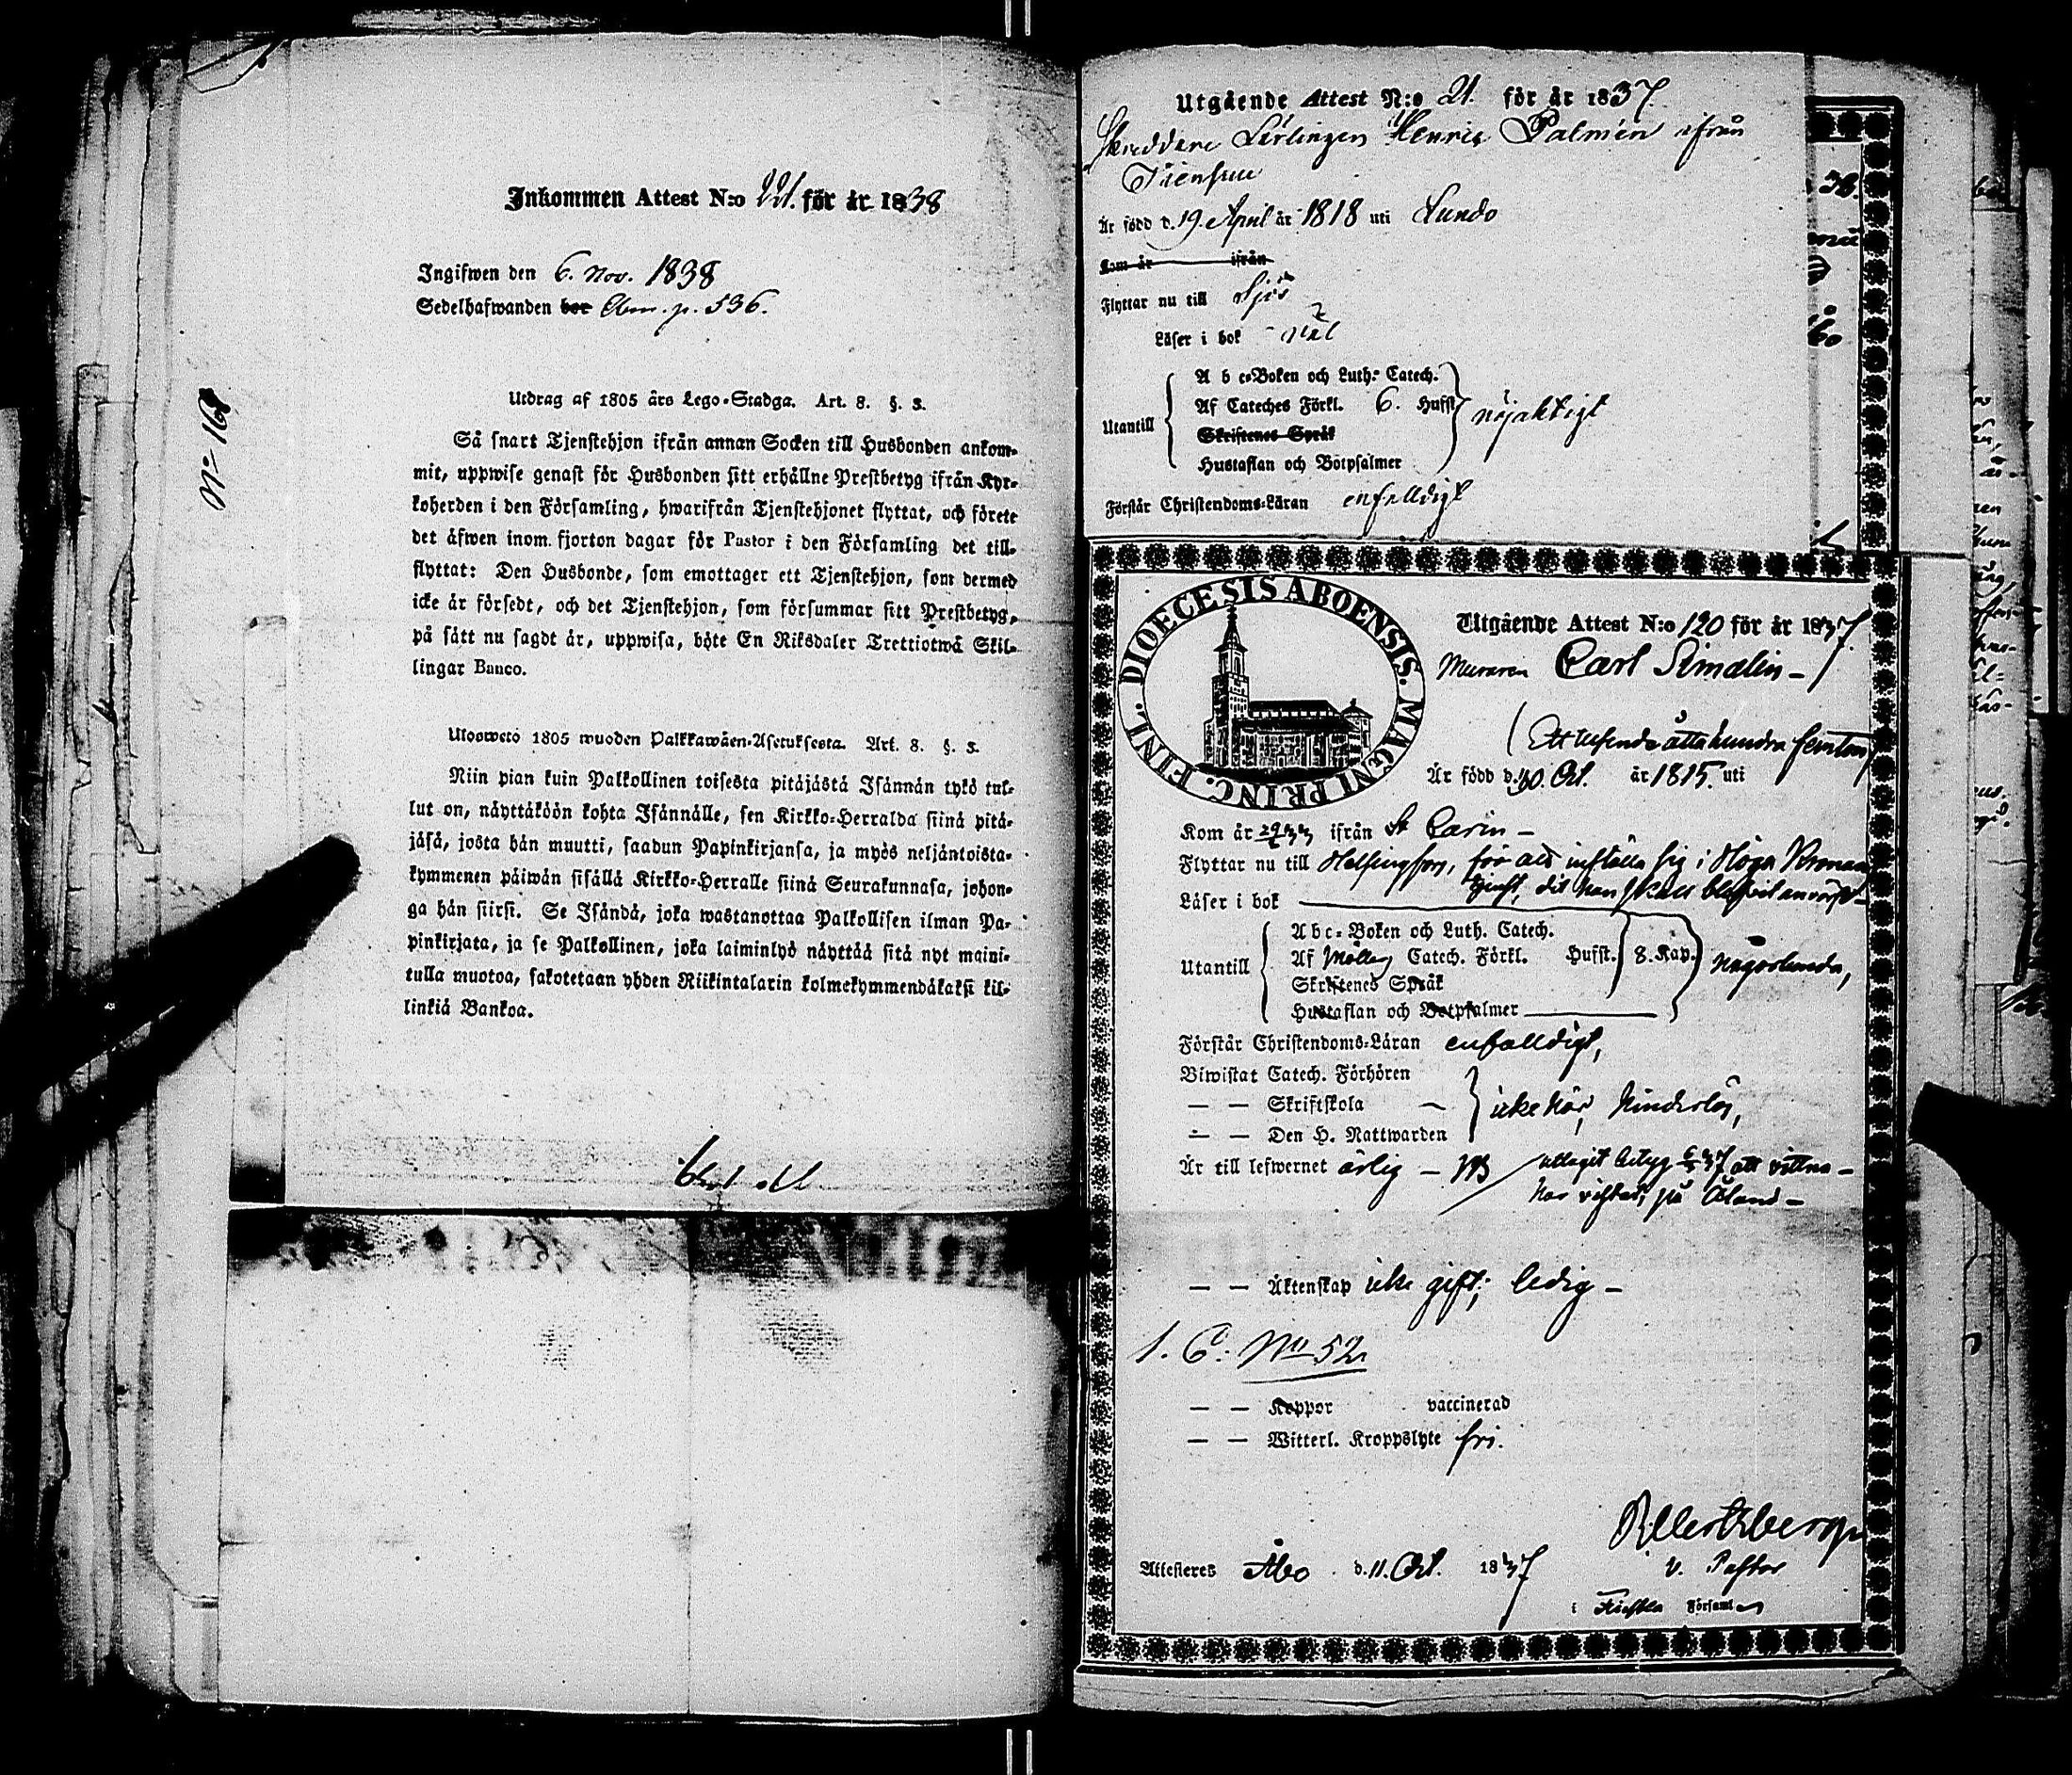 Inkommen Attest N:o 221. för år 1838
Ingifwen den 6. Nov. 1838
Sedelhafwanden bor Abm. p. 536.
No 168
Utdrag af 1805 års Lego-Stadga. Art. 8. §. 3.
Så snart Tjenstehjon ifrån annan Socken till Husbonden ankom-
mit, uppwise genast för Husbonden sitt erhållne Prestbetyg ifrån Kyr-
koherden i den Församling, hwarifrån Tjenstehjonet flyttat, och förete
det äfwen inom fjorton dagar för Pastor i den Församling det till-
flyttat: Den Husbonde, som emottager ett Tjenstehjon, som dermed
icke är försedt, och det Tjenstehjon, som försummar sitt Prestbetyg,
på sätt nu sagdt är, uppwisa, böte En Riksdaler Trettiotwå Skil-
lingar Banco.
Ulosweto 1805 wuoden Palkkawäen-Asetuksesta. Art. 8. §. 3.
Niin pian kuin Palkollinen toisesta pitäjästä Isännän tykö tul-
lut on, näyttäköön kohta Isännälle, sen Kirkko-Herralda siinä pitä-
jäsä, josta hän muutti, saadun Papinkirjansa, ja myös neljäntoista-
kymmenen päiwän sisällä Kirkko-Herralle siinä Seurakunnasa, johon-
ga hän siirsi. Se Isändä, joka wastanottaa Palkollisen ilman Pa-
pinkirjata, ja se Palkollinen, joka laiminlyö näyttää sitä nyt maini-
tulla muotoa, sakotetaan yhden Riikintalarin kolmekymmendäkaksi kil-
linkiä Bankoa.
Utgående Attest N:o 21. för år 1837
Skreddare Lärlingen Henric Palmén ifrån
Är född d. 19. April år 1818 uti Lundo
Kom år ifrån
Flyttar nu till Åbo
Läser i bok väl
A b c-Boken och Luth. Catech.
Af Cateches Förkl. 6. Hufst.
Utantill nöjaktigt
Skriftenes Språk
Hustaflan och Botpsalmer
Förstår Christendoms-Läran enfalldigt
DIOECESIS ABOENSIS. MAGNI PRINC. FINL.
Utgående Attest N:o 120 för år 1837.
Muraren Carl Simelin
(Ett tusende åtta hundra femton)
Är född d. 10. Oct. år 1815. uti
Kom år ifrån St Carin
Flyttar nu till Helsingfors, för att inställa sig i Höga Kronans
tjenst, dit han skall blifvit anvärfd
Läser i bok
Abc-Boken och Luth. Catech.
Utantill Af Möllers Catech. Förkl. Hufst. 8. Kap. någorlunda,
Skriftenes Språk
Hustaflan och Botpsalmer
Förstår Christendoms-Läran enfalldigt,
Biwistat Catech. Förhören
— — Skriftskola icke här, hinderlös,
— — Den H. Nattwarden
Är till lefwernet ärlig — NB uttagit betyg 37 att vittna
har vistats på Åland
— — Äktenskap icke gift; ledig
1. C: No 52
— — Koppor vaccinerad
— — Witterl. Kroppslyte fri.
Attesteres Åbo d. 11. Oct. 1837
v. Pastor
i Församl.